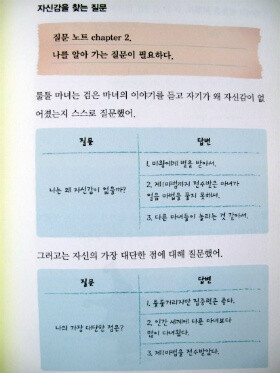 자신감을 찾는 질문
질문 노트 chapter 2.
나를 알아 가는 질문이 필요하다.
툴툴 마녀는 검은 마녀의 이야기를 듣고 자기가 왜 자신감이 없
어졌는지 스스로 질문했어.
질문
답변
나는 왜 자신감이 없을까?
1. 마왕에게 벌을 받아서.
2. 제1마법까지 전수받은 마녀가
얼음 마법을 풀지 못해서.
3. 다른 마녀들이 놀리는 것 같아서.
그러고는 자신의 가장 대단한 점에 대해 질문했어.
질문
답변
나의 가장 대단한 점은?
1. 툴툴거리지만 집중력은 좋다.
2. 인간 세계에 다른 마녀보다
많이 다녀왔다.
3. 제1마법을 전수받았다.